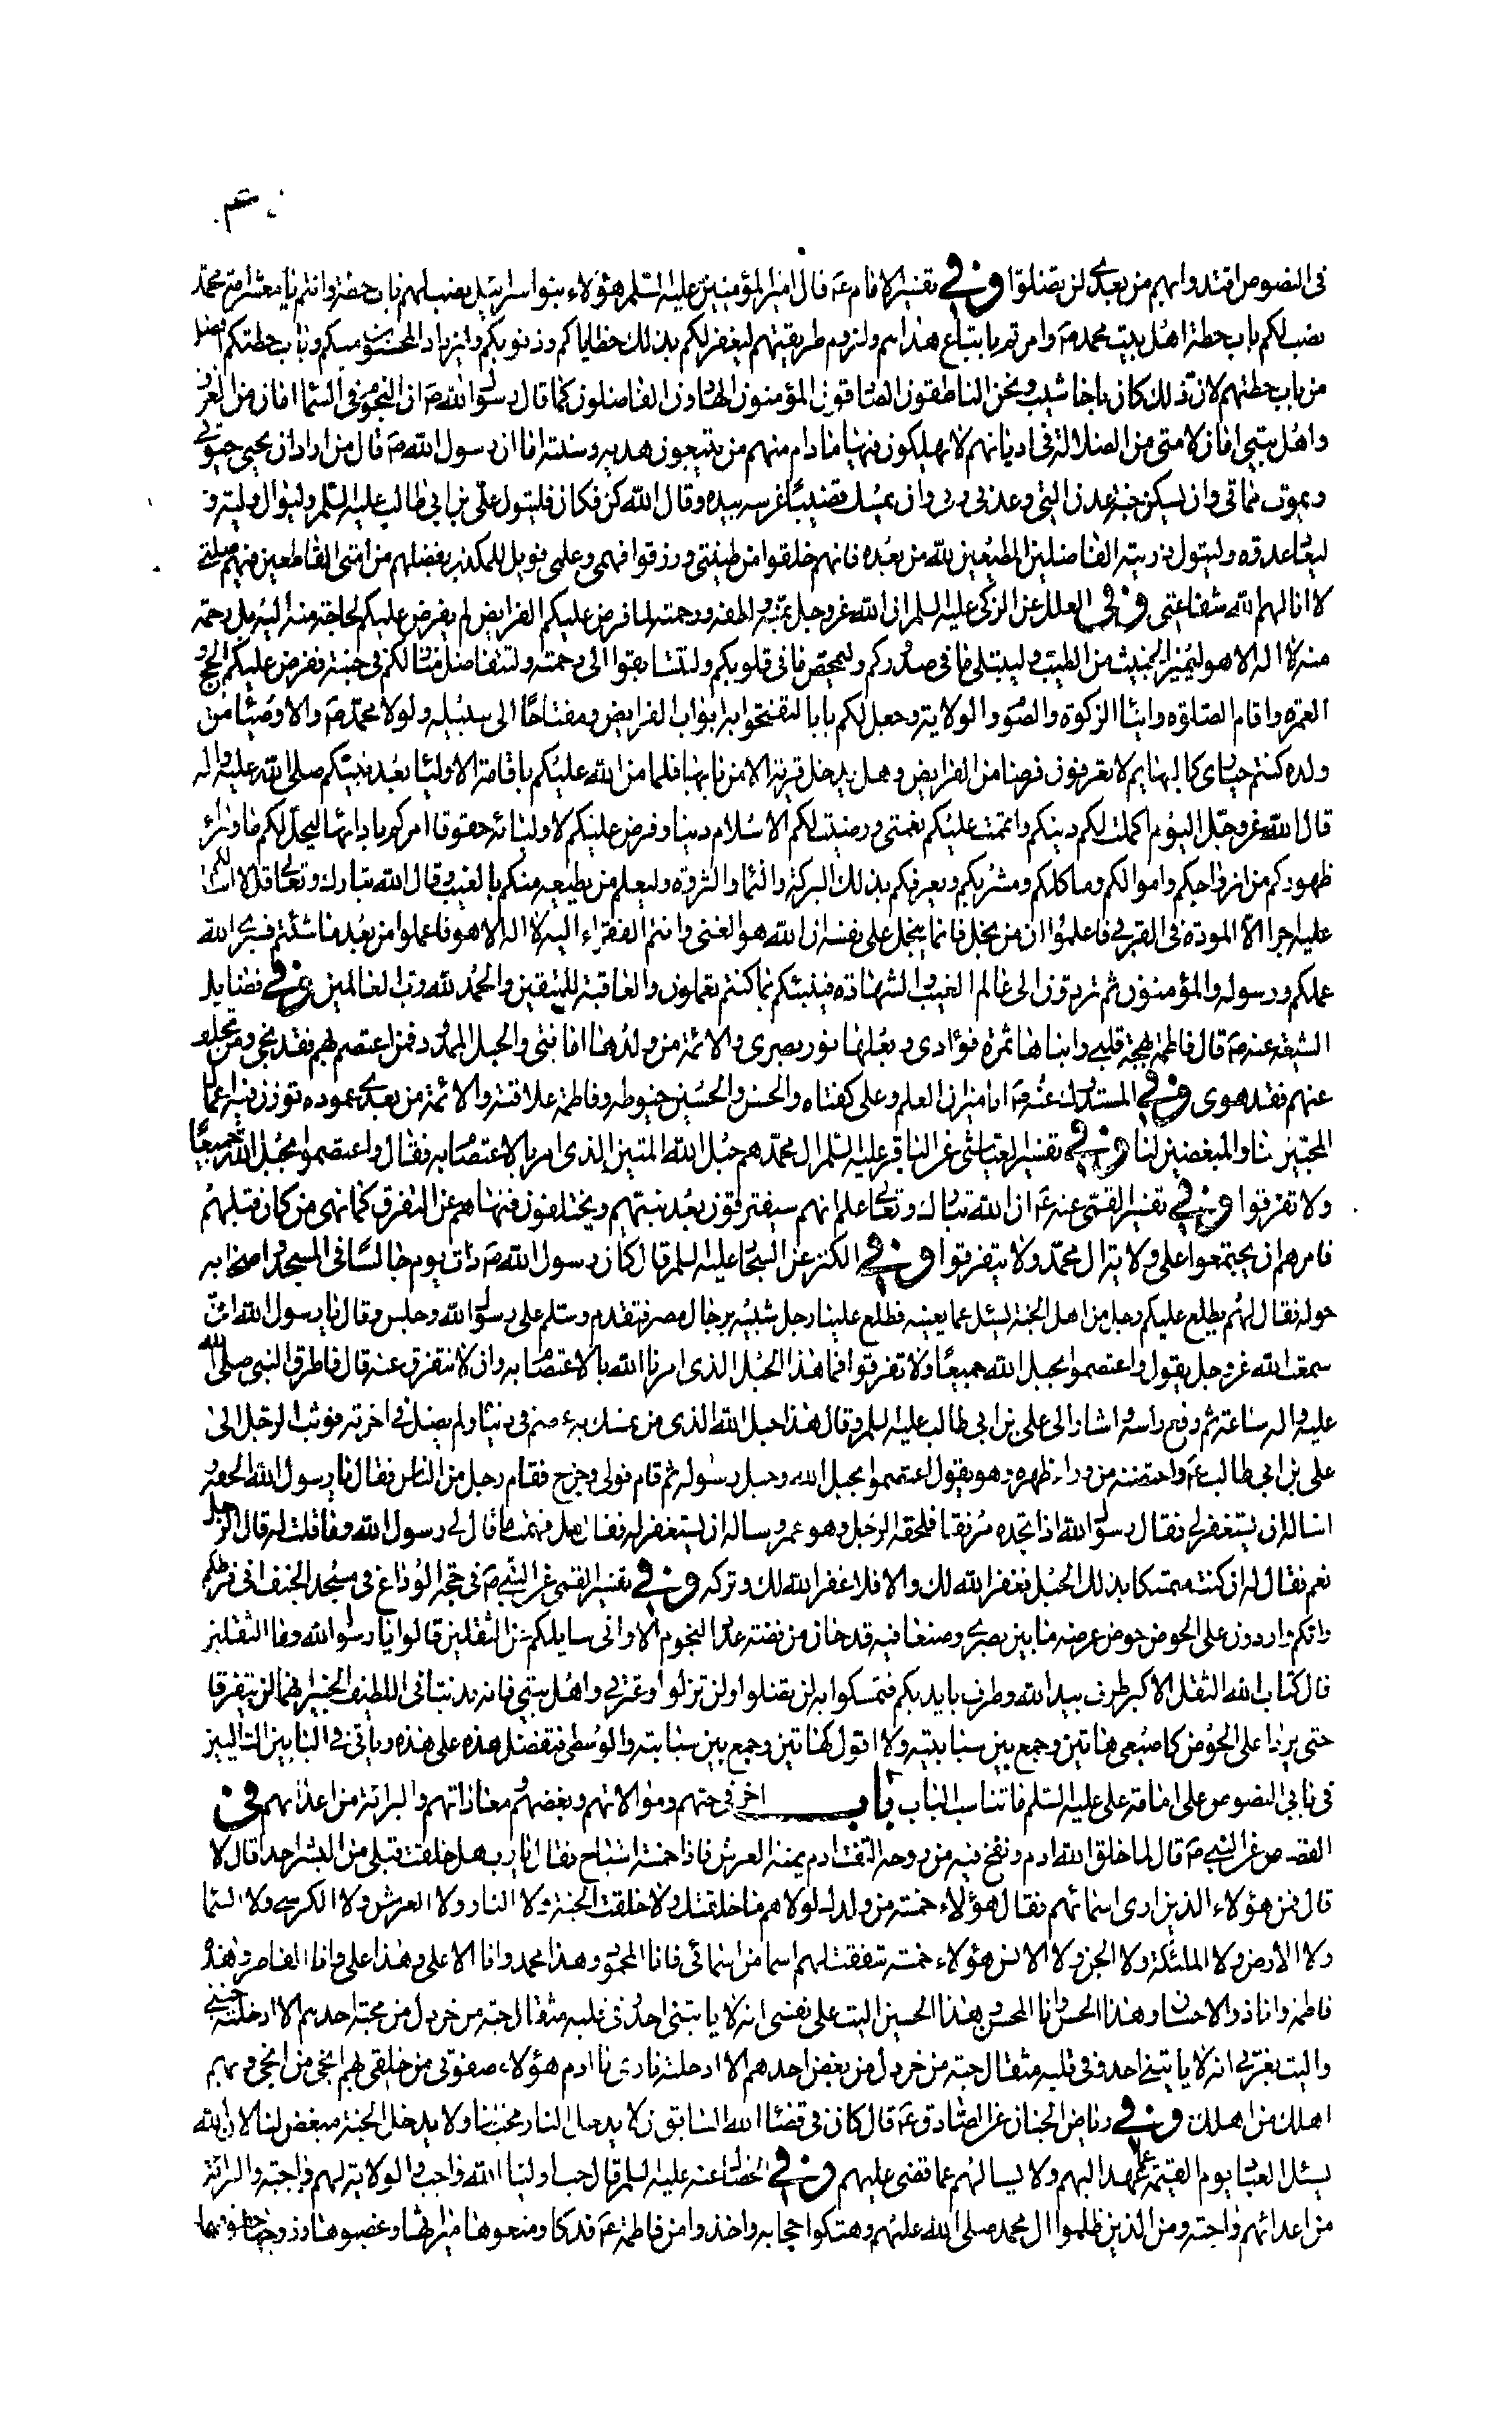 في النصوص اقتدوا بهم من بعدي لن تضلوا وفي تفسير الامام ع قال امير المؤمنين عليه السلم هؤلاء بنو اسرائيل نصب لهم باب حطة وانتم يا معشر امة محمد
نصب لكم باب حطة اهل بيت محمد ص وامرتم باتباع هداهم ولزوم طريقتهم ليغفر لكم بذلك خطاياكم وذنوبكم وليزداد المحسنون منكم وباب حطتكم افضل
من باب حطتهم لان ذلك كان باخاشيب ونحن الناطقون الصادقون المؤمنون الهادون الفاضلون كما قال رسول الله ص ان النجوم في السماء امان من الغرق
واهل بيتي امان لامتي من الضلالة في اديانهم لا يهلكون فيها ما دام منهم من يتبعون هديه وسنته اما ان رسول الله ص قال من اراد ان يحيى حيوتي
ويموت مماتي وان يسكن جنة عدن التي وعدني ربي وان يمسك قضيبا غرسه بيده وقال الله كن فكان فليتول علي بن ابي طالب عليه السلم وليوال وليه و
ليعاد عدوه وليتول ذريته الفاضلين المطيعين لله من بعده فانهم خلقوا من طينتي ورزقوا فهمي وعلمي فويل للمكذبين بفضلهم من امتي القاطعين فيهم صلتي
لا انالهم الله شفاعتي وفي العلل عن الزكي عليه السلم ان الله عز وجل بمنه ولطفه ورحمته لما فرض عليكم الفرايض لم يفرض عليكم لحاجة منه اليه بل رحمة
منه لا اله الا هو ليميز الخبيث من الطيب وليبتلي ما في صدوركم وليمحص ما في قلوبكم ولتتسابقوا الى رحمته ولتتفاضل منازلكم في جنته ففرض عليكم الحج و
العمرة واقام الصلوة وايتاء الزكوة والصوم والولاية وجعل لكم بابا لتفتحوا به ابواب الفرايض ومفتاحا الى سبيله ولولا محمد ص والاوصياء من
ولده كنتم حيارى كالبهايم لا تعرفون فرضا من الفرايض وهل يدخل قرية الا من بابها فلما من الله عليكم باقامة الاولياء بعد نبيكم صلى الله عليه واله
قال الله عز وجل اليوم اكملت لكم دينكم واتممت عليكم نعمتي ورضيت لكم الاسلام دينا وفرض عليكم لاوليائه حقوقا امركم بادائها ليحل لكم ما وراء
ظهوركم من ازواجكم واموالكم وماكلكم ومشربكم ويعرفكم بذلك البركة والنماء والثروة وليعلم من يطيعه منكم بالغيب وقال الله تبارك وتعالى قل لا اسالكم
عليه اجرا الا المودة في القربى فاعلموا ان من يبخل فانما يبخل على نفسه ان الله هو الغني وانتم الفقراء اليه لا اله الا هو فاعملوا من بعد ما شئتم فسيرى الله
عملكم ورسوله والمؤمنون ثم تردون الى عالم الغيب والشهادة فينبئكم بما كنتم تعملون والعاقبة للمتقين والحمد لله رب العالمين وفي فضايل
الشيعة عنه ص قال فاطمة بهجة قلبي وابناها ثمرة فؤادي وبعلها نور بصري والائمة من ولدها امنائي والحبل الممدود فمن اعتصم بهم فقد نجى ومن تخلف
عنهم فقد هوى وفي المستدرك عنه ص انا ميزان العلم وعلي كفتاه والحسن والحسين خيوطه وفاطمة علاقته والائمة من بعدي عموده توزن فيه اعمال
المحبين لنا والمبغضين لنا وفي تفسير العياشي عن الباقر عليه السلم ال محمد هم حبل الله المتين الذي امر بالاعتصام به فقال واعتصموا بحبل الله جميعا
ولا تفرقوا وفي تفسير القمي عنه ع ان الله تبارك وتعالى علم انهم سيفترقون بعد نبيهم ويختلفون فنهاهم عن التفرق كما نهى من كان قبلهم
فامرهم ان يجتمعوا على ولاية ال محمد ولا يتفرقوا وفي الكنز عن السجاد عليه السلم قال كان رسول الله ص ذات يوم جالسا في المسجد واصحابه
حوله فقال لهم يطلع عليكم رجل من اهل الجنة يسئل عما يعنيه فطلع علينا رجل شبيه برجال مصر فتقدم وسلم على رسول الله وجلس وقال يا رسول الله اني
سمعت الله عز وجل يقول واعتصموا بحبل الله جميعا ولا تفرقوا فما هذا الحبل الذي امرنا الله بالاعتصام به وان لا نتفرق عنه قال فاطرق النبي صلى الله
عليه واله ساعة ثم رفع راسه واشار الى علي بن ابي طالب عليه السلم وقال هذا حبل الله الذي من تمسك به عصم في دنياه ولم يضل في اخرته فوثب الرجل الى
علي بن ابي طالب ع واحتضنه من وراء ظهره وهو يقول اعتصموا بحبل الله وحبل رسوله ثم قام فولى وخرج فقام رجل من الناس فقال يا رسول الله الحقه و
اساله ان يستغفر لي فقال رسول الله اذا تجده مرفقا فلحقه الرجل وهو عمر وساله ان يستغفر له فقال هل فهمت ما قال لي رسول الله وما قلت له قال الرجل
نعم فقال له ان كنت متمسكا بذلك الحبل فغفر الله لك والا فلا غفر الله لك وتركه وفي تفسير القمي عن النبي ص في حجة الوداع في مسجد الخيف اني فرطكم
وانكم واردون على الحوض حوض عرضه ما بين بصرى وصنعاء فيه قدحان من فضة عدد النجوم الا واني سايلكم عن الثقلين قالوا يا رسول الله وما الثقلين
قال كتاب الله الثقل الاكبر طرف بيد الله وطرف بايديكم فتمسكوا به لن تضلوا ولن تزلوا وعترتي واهل بيتي فانه قد نباني اللطيف الخبير انهما لن يتفرقا
حتى يردا على الحوض كاصبعي هاتين وجمع بين سبابتيه ولا اقول كهاتين وجمع بين سبابته والوسطى فتفضل هذه على هذه وياتي في البابين التاليين
في بابي النصوص على امامة علي عليه السلم ما تناسب الباب باب اخر في حبهم وموالاتهم وبغضهم ومعاداتهم والبرائة من اعدائهم في
القصص عن النبي ص قال لما خلق الله ادم ونفخ فيه من روحه التفت ادم يمنة العرش فاذا خمسة اشباح فقال يا رب هل خلقت قبلي من البشر احدا قال لا
قال فمن هؤلاء الذين ارى اسمائهم فقال هؤلاء خمسة من ولدك لولاهم ما خلقتك ولا خلقت الجنة ولا النار ولا العرش ولا الكرسي ولا السماء
ولا الارض ولا الملئكة ولا الجن ولا الانس هؤلاء خمسة شققت لهم اسما من اسمائي فانا المحمود وهذا محمد وانا الاعلى وهذا علي وانا الفاطر وهذه
فاطمة وانا ذو الاحسان وهذا الحسن وانا المحسن وهذا الحسين اليت على نفسي انه لا ياتيني احد وفي قلبه مثقال حبة من خردل من محبة احدهم الا ادخلته جنتي
واليت بعزتي انه لا ياتيني احد وفي قلبه مثقال حبة من خردل من بغض احدهم الا ادخلته ناري يا ادم هؤلاء صفوتي من خلقي بهم انجي من انجي وبهم
اهلك من اهلك وفي رياض الجنان عن الصادق ع قال كان في قضاء الله السابق ان لا يدخل النار محب لنا ولا يدخل الجنة مبغض لنا لان الله
يسئل العباد يوم القيمة عما عهد اليهم ولا يسالهم عما قضى عليهم وفي الخصال عنه عليه السلم قال حب اولياء الله واجب والولاية لهم واجبة والبرائة
من اعدائهم واجبة ومن الذين ظلموا ال محمد صلى الله عليهم وهتكوا حجابه واخذوا من فاطمة ع فدكا ومنعوها ميراثها وغصبوها وزوجها حقوقهما